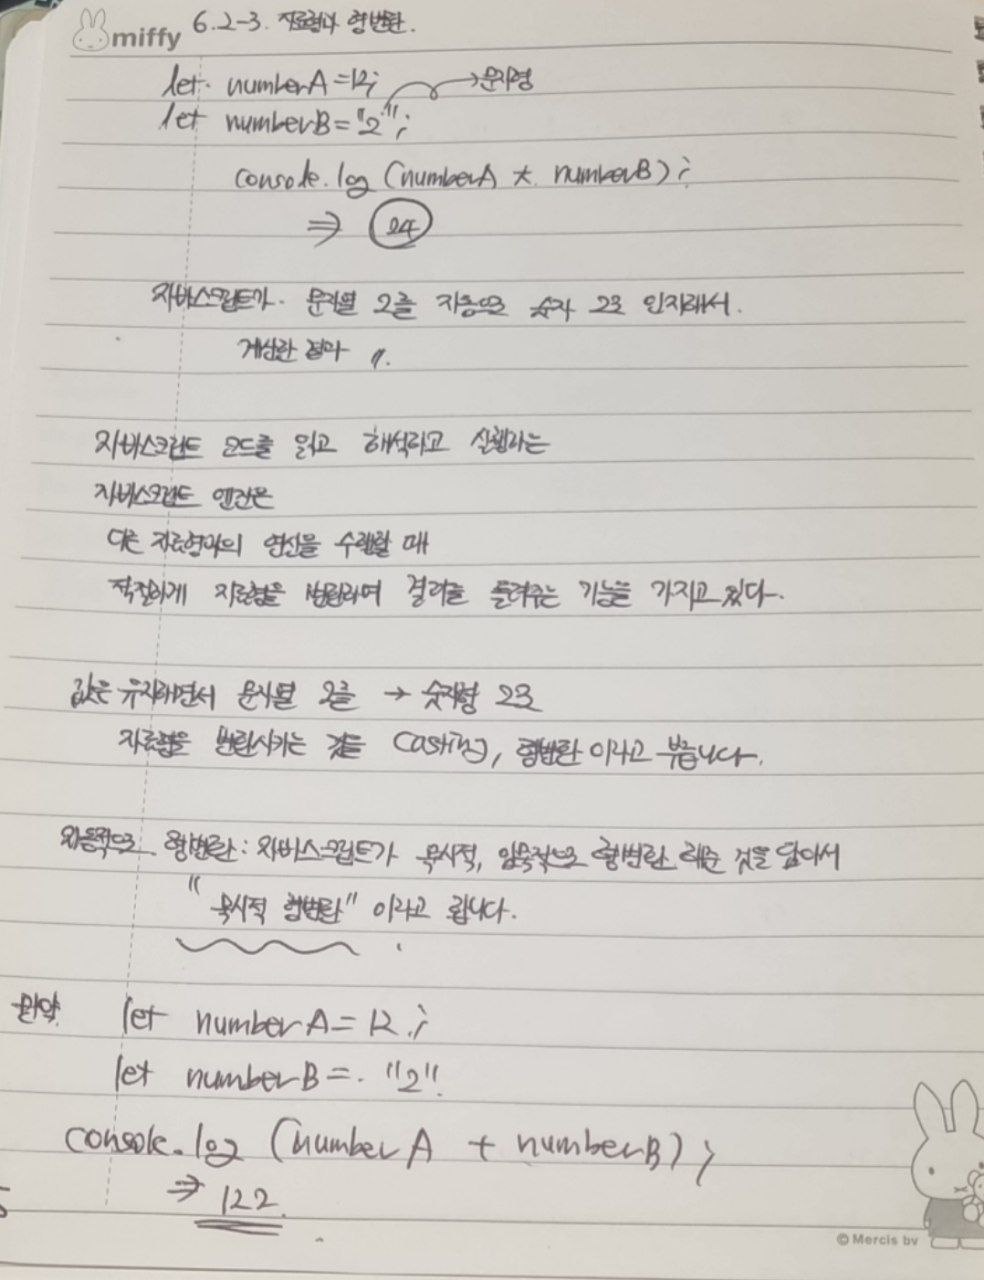 miffy 6.2-3. 자료형과 형변환.
let numberA = 12; → 문자형
let numberB = "2";
console.log (numberA * numberB);
⇒ 24
자바스크립트가 문자열 2를 자동으로 숫자 2로 인지해서.
계산한 결과 〃.
자바스크립트 코드를 읽고 해석하고 실행하는
자바스크립트 엔진은
다른 자료형과의 연산을 수행할 때
적절하게 자료형을 변환하여 결과를 돌려주는 기능을 가지고 있다.
값은 유지하면서 문자열 2를 → 숫자형 2로
자료형을 변환시키는 것을 Casting, 형변환 이라고 부릅니다.
자동적으로 형변환: 자바스크립트가 묵시적, 암묵적으로 형변환 해준 것을 담아서
"묵시적 형변환" 이라고 합니다.
만약 let numberA = 12;
let numberB = "2".
console.log (numberA + numberB);
⇒ 122.
© Mercis bv